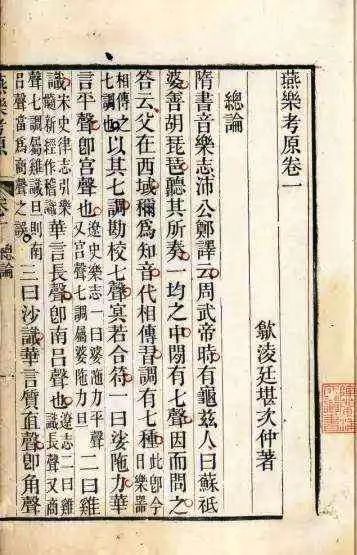 燕樂考原卷一
歙淩廷堪次仲著
總論
隋書音樂志沛公鄭譯云周武帝時有龜茲人曰蘇祗
婆善胡琵琶聽其所奏一均之中閒有七聲因而問之
答云父在西域稱爲知音代相傳習調有七種此卽今日樂器
相傳之七調也以其七調勘校七聲冥若合符一曰娑陁力華
言平聲卽宮聲也遼史樂志一曰婆陁力平聲又宮聲七調屬婆陁力旦二曰雞
識宋史律志引樂髓新經作稽識華言長聲卽南呂聲也遼志二曰雞識長聲又商
聲七調屬雞識旦則南呂聲當爲商聲之誤三曰沙識華言質直聲卽角聲
燕樂考原
卷一
總論